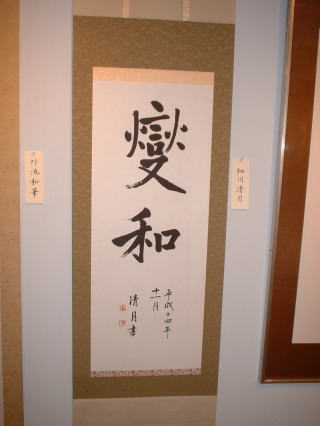 燮
和
平成十四年
十一月
清月書
細川清月
外池和華